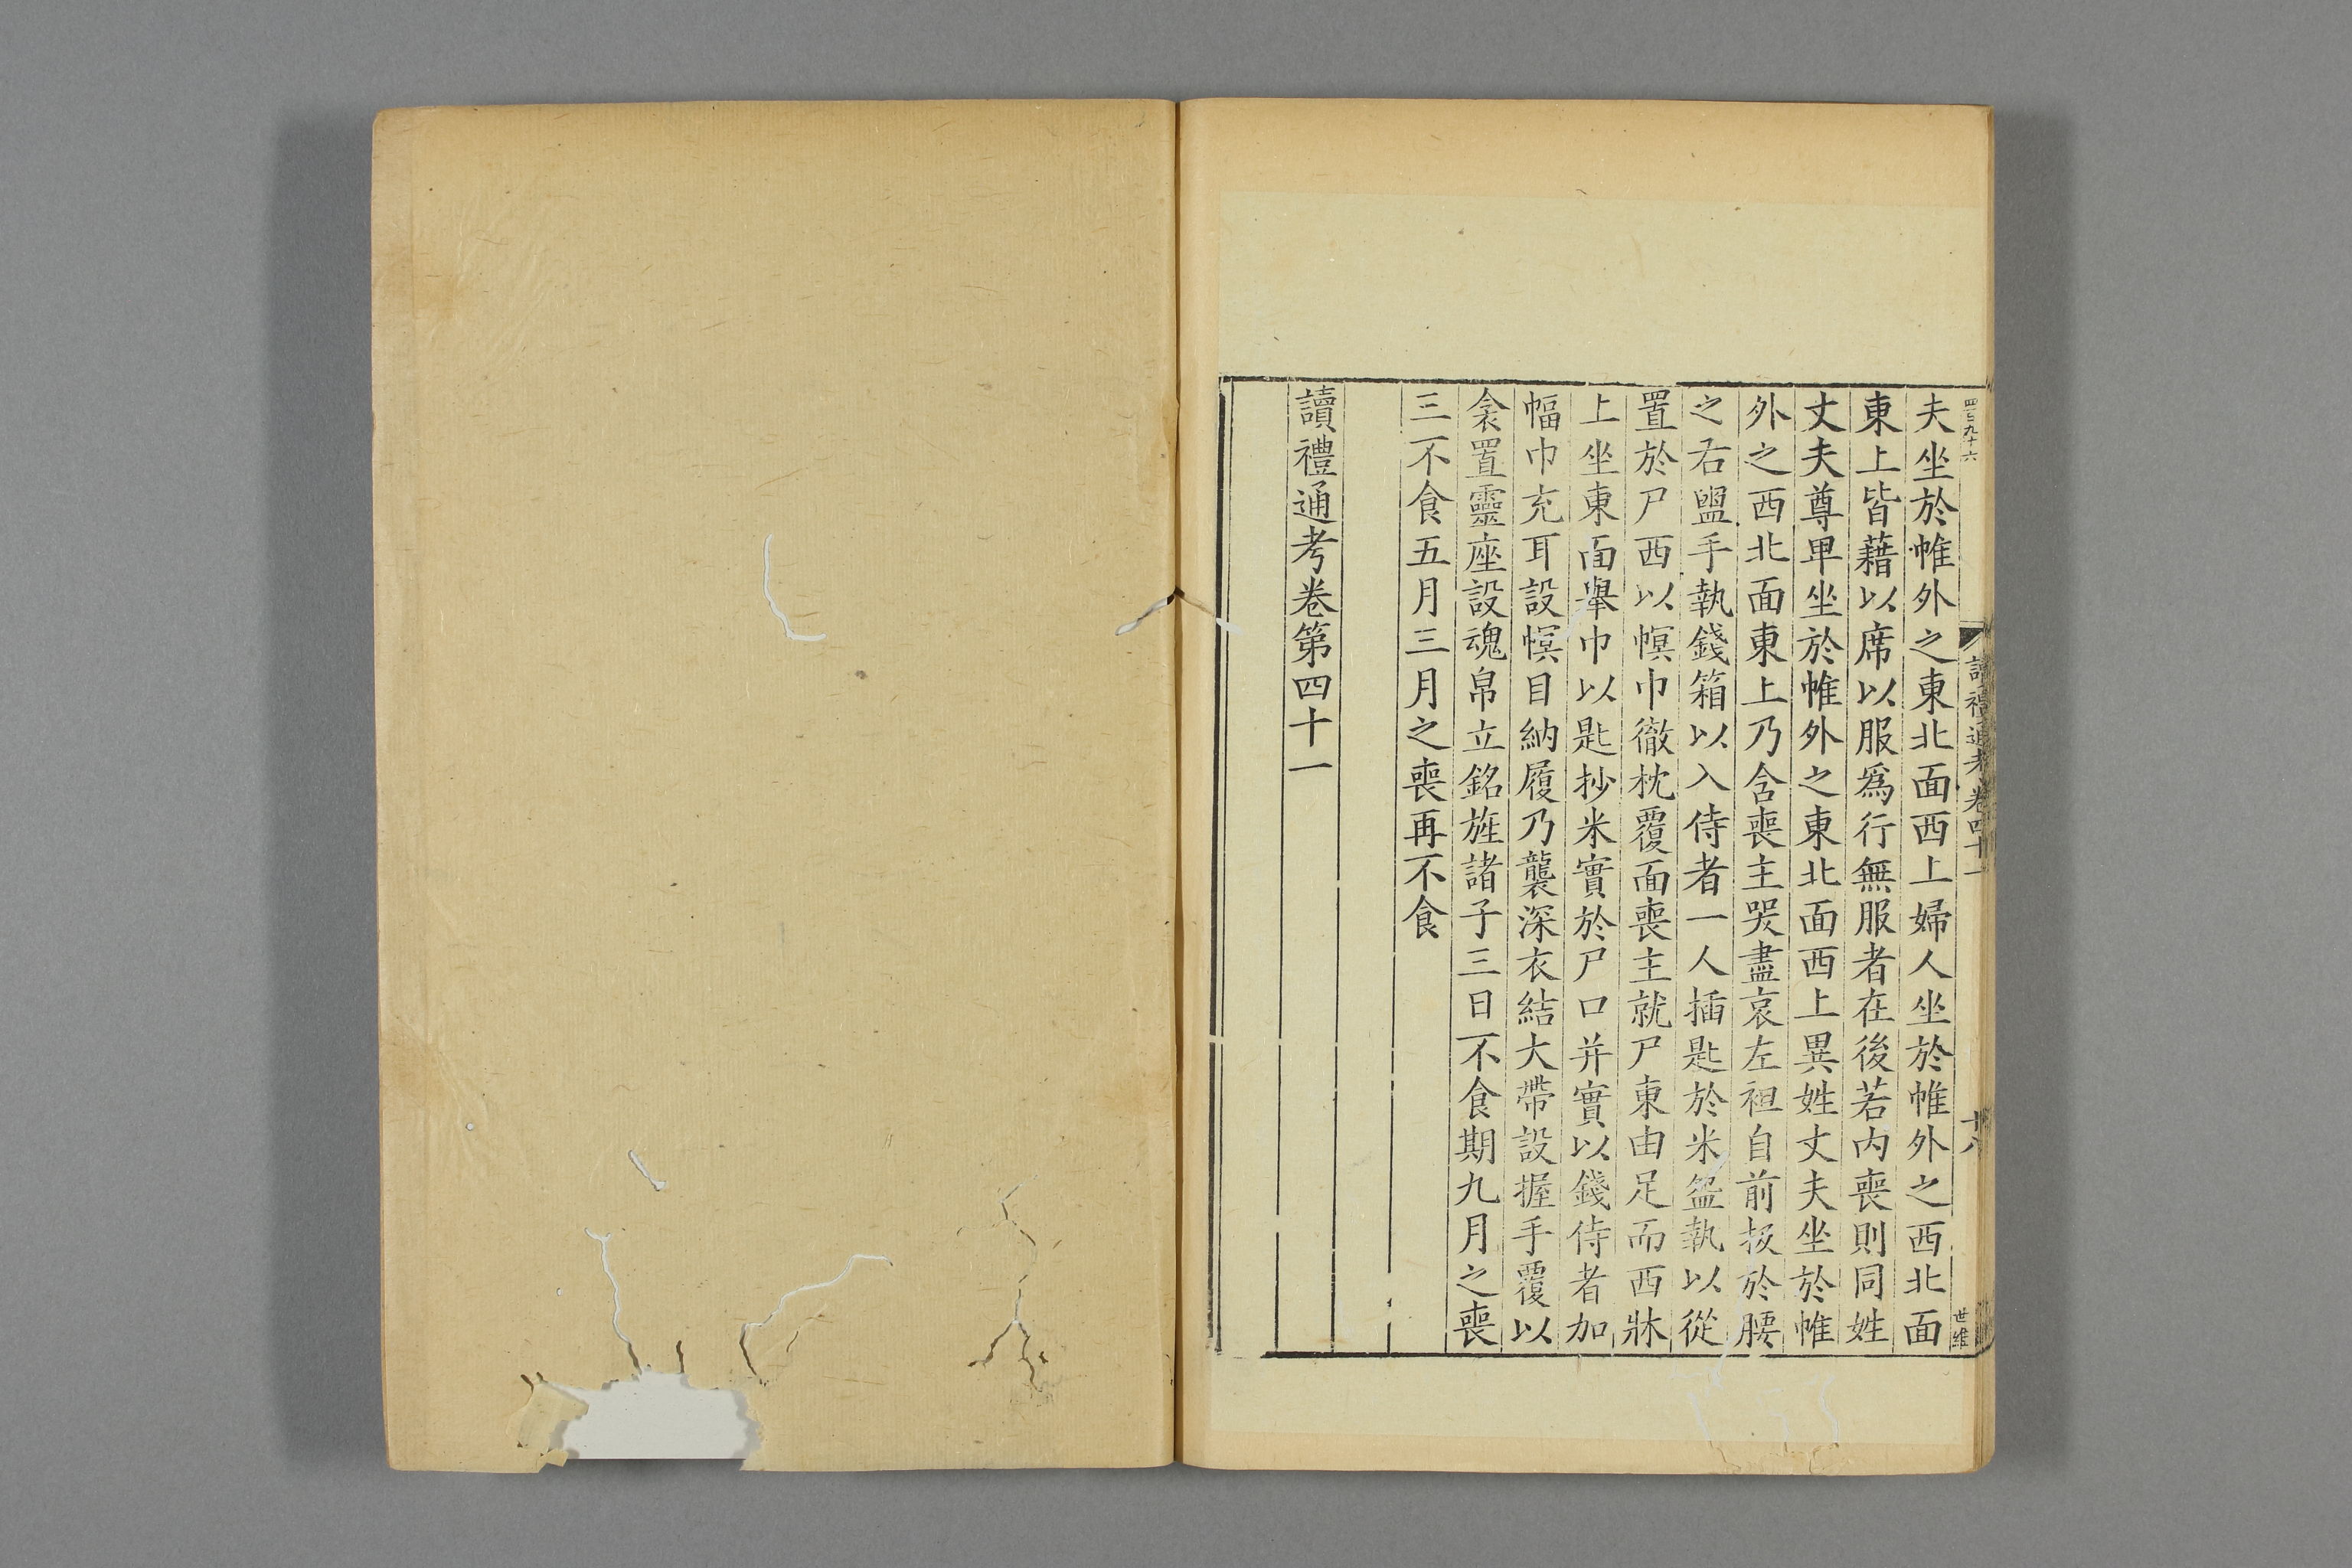 四百九十六
讀禮通考卷四十一
十八
世維
夫坐於帷外之東北面西上婦人坐於帷外之西北面
東上皆藉以席以服爲行無服者在後若内喪則同姓
丈夫尊卑坐於帷外之東北面西上異姓丈夫坐於帷
外之西北面東上乃含喪主哭盡哀左袒自前扱於腰
之右盥手執錢箱以入侍者一人插匙於米盌執以從
置於尸西以幎巾徹枕覆面喪主就尸東由足而西牀
上坐東面舉巾以匙抄米實於尸口并實以錢侍者加
幅巾充耳設幎目納履乃襲深衣結大帶設握手覆以
衾置靈座設魂帛立銘旌諸子三日不食期九月之喪
三不食五月三月之喪再不食
讀禮通考卷第四十一